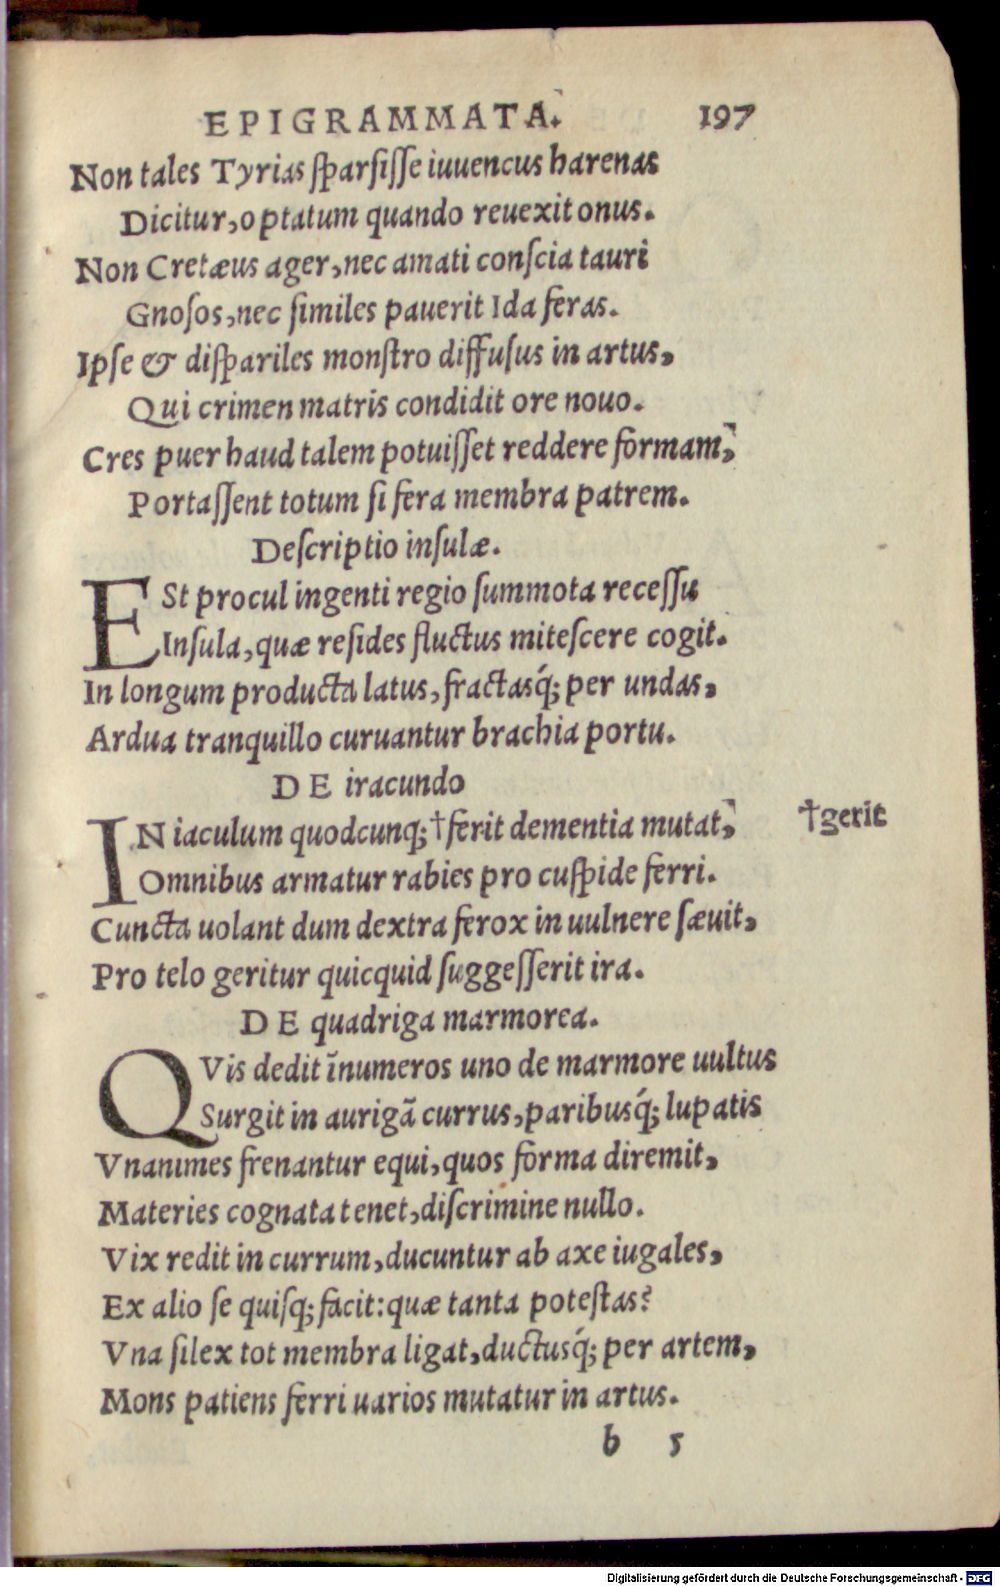 EPIGRAMMATA. 197
Non tales Tyrias sparsisse iuuencus harenas
Dicitur, optatum quando reuexit onus.
Non Cretæus ager, nec amati conscia tauri
Gnosos, nec similes pauerit Ida feras.
Ipse & dispariles monstro diffusus in artus,
Qui crimen matris condidit ore nouo.
Cres puer haud talem potuisset reddere formam,
Portassent totum si fera membra patrem.
Descriptio insulæ.
ESt procul ingenti regio summota recessu
Insula, quæ resides fluctus mitescere cogit.
In longum producta latus, fractasq́; per undas,
Ardua tranquillo curuantur brachia portu.
DE iracundo
IN iaculum quodcunq; †ferit dementia mutat, †gerit
Omnibus armatur rabies pro cuspide ferri.
Cuncta uolant dum dextra ferox in uulnere sæuit,
Pro telo geritur quicquid suggesserit ira.
DE quadriga marmorea.
QVis dedit īnumeros uno de marmore uultus
Surgit in aurigā currus, paribusq́; lupatis
Vnanimes frenantur equi, quos forma diremit,
Materies cognata tenet, discrimine nullo.
Vix redit in currum, ducuntur ab axe iugales,
Ex alio se quisq; facit: quæ tanta potestas?
Vna silex tot membra ligat, ductusq́; per artem,
Mons patiens ferri uarios mutatur in artus.
b 5
Digitalisierung gefördert durch die Deutsche Forschungsgemeinschaft - DFG